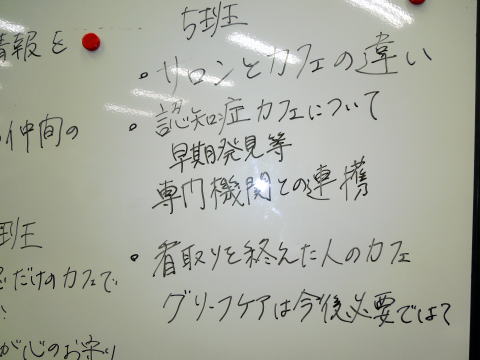 情報を
仲間の
班
だけのカフェで
が心のお守り
5班
・サロンとカフェの違い
・認知症カフェについて
早期発見等
専門機関との連携
・看取りを終えた人のカフェ
グリーフケアは今後必要では?